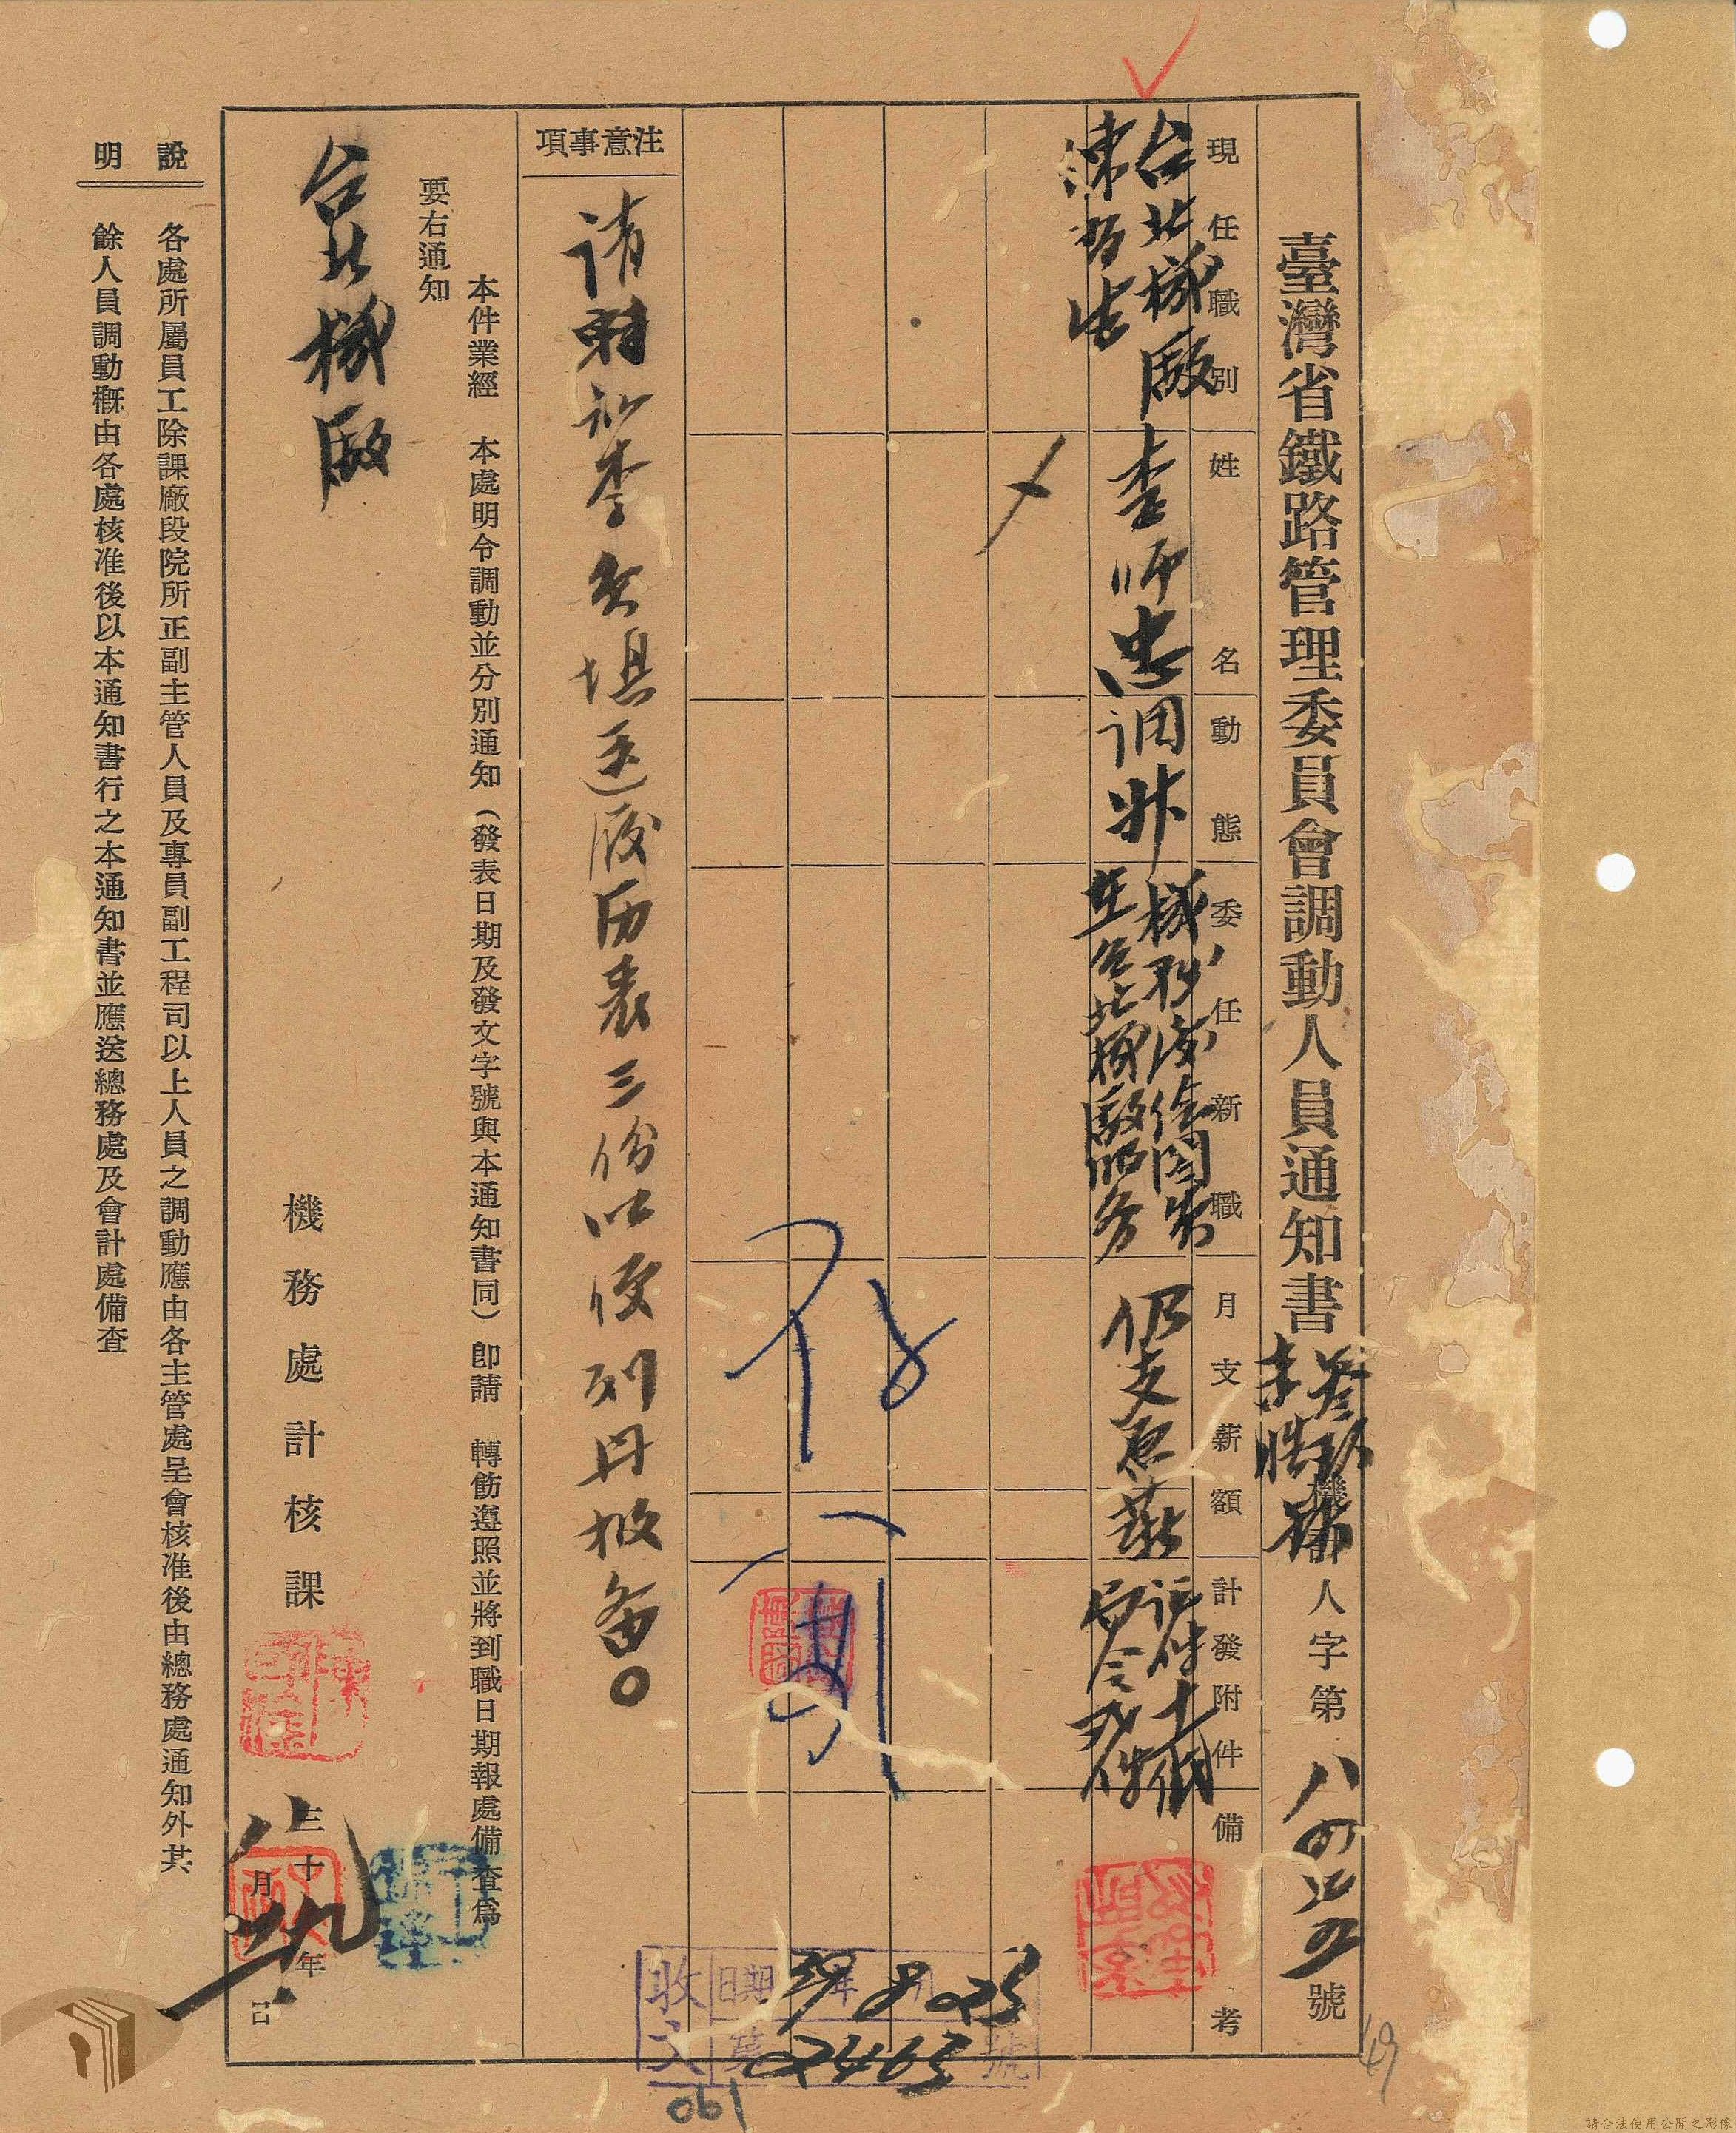 臺灣省鐵路管理委員會調動人員通知書
機人字第八四二五號
現任職別
姓名
動態
委任新職
月支薪額
計發附件
備考
台北機廠
練習生
李師忠
調升
機務處繪圖員
在台北機廠服务
仍支原薪
注意事項
請轉知李員填送履历表三份以便列册报备。
本件業經 本處明令調動並分別通知(發表日期及發文字號與本通知書同)卽請 轉飭遵照並將到職日期報處備查爲
要右通知
台北機廠
機務處計核課
三十九年八月
說明
各處所屬員工除課廠段院所正副主管人員及專員副工程司以上人員之調動應由各主管處呈會核准後由總務處通知外其
餘人員調動槪由各處核准後以本通知書行之本通知書並應送總務處及會計處備查
收文
日期 39年8月25
第02463號
061
149
請合法使用公開之影像